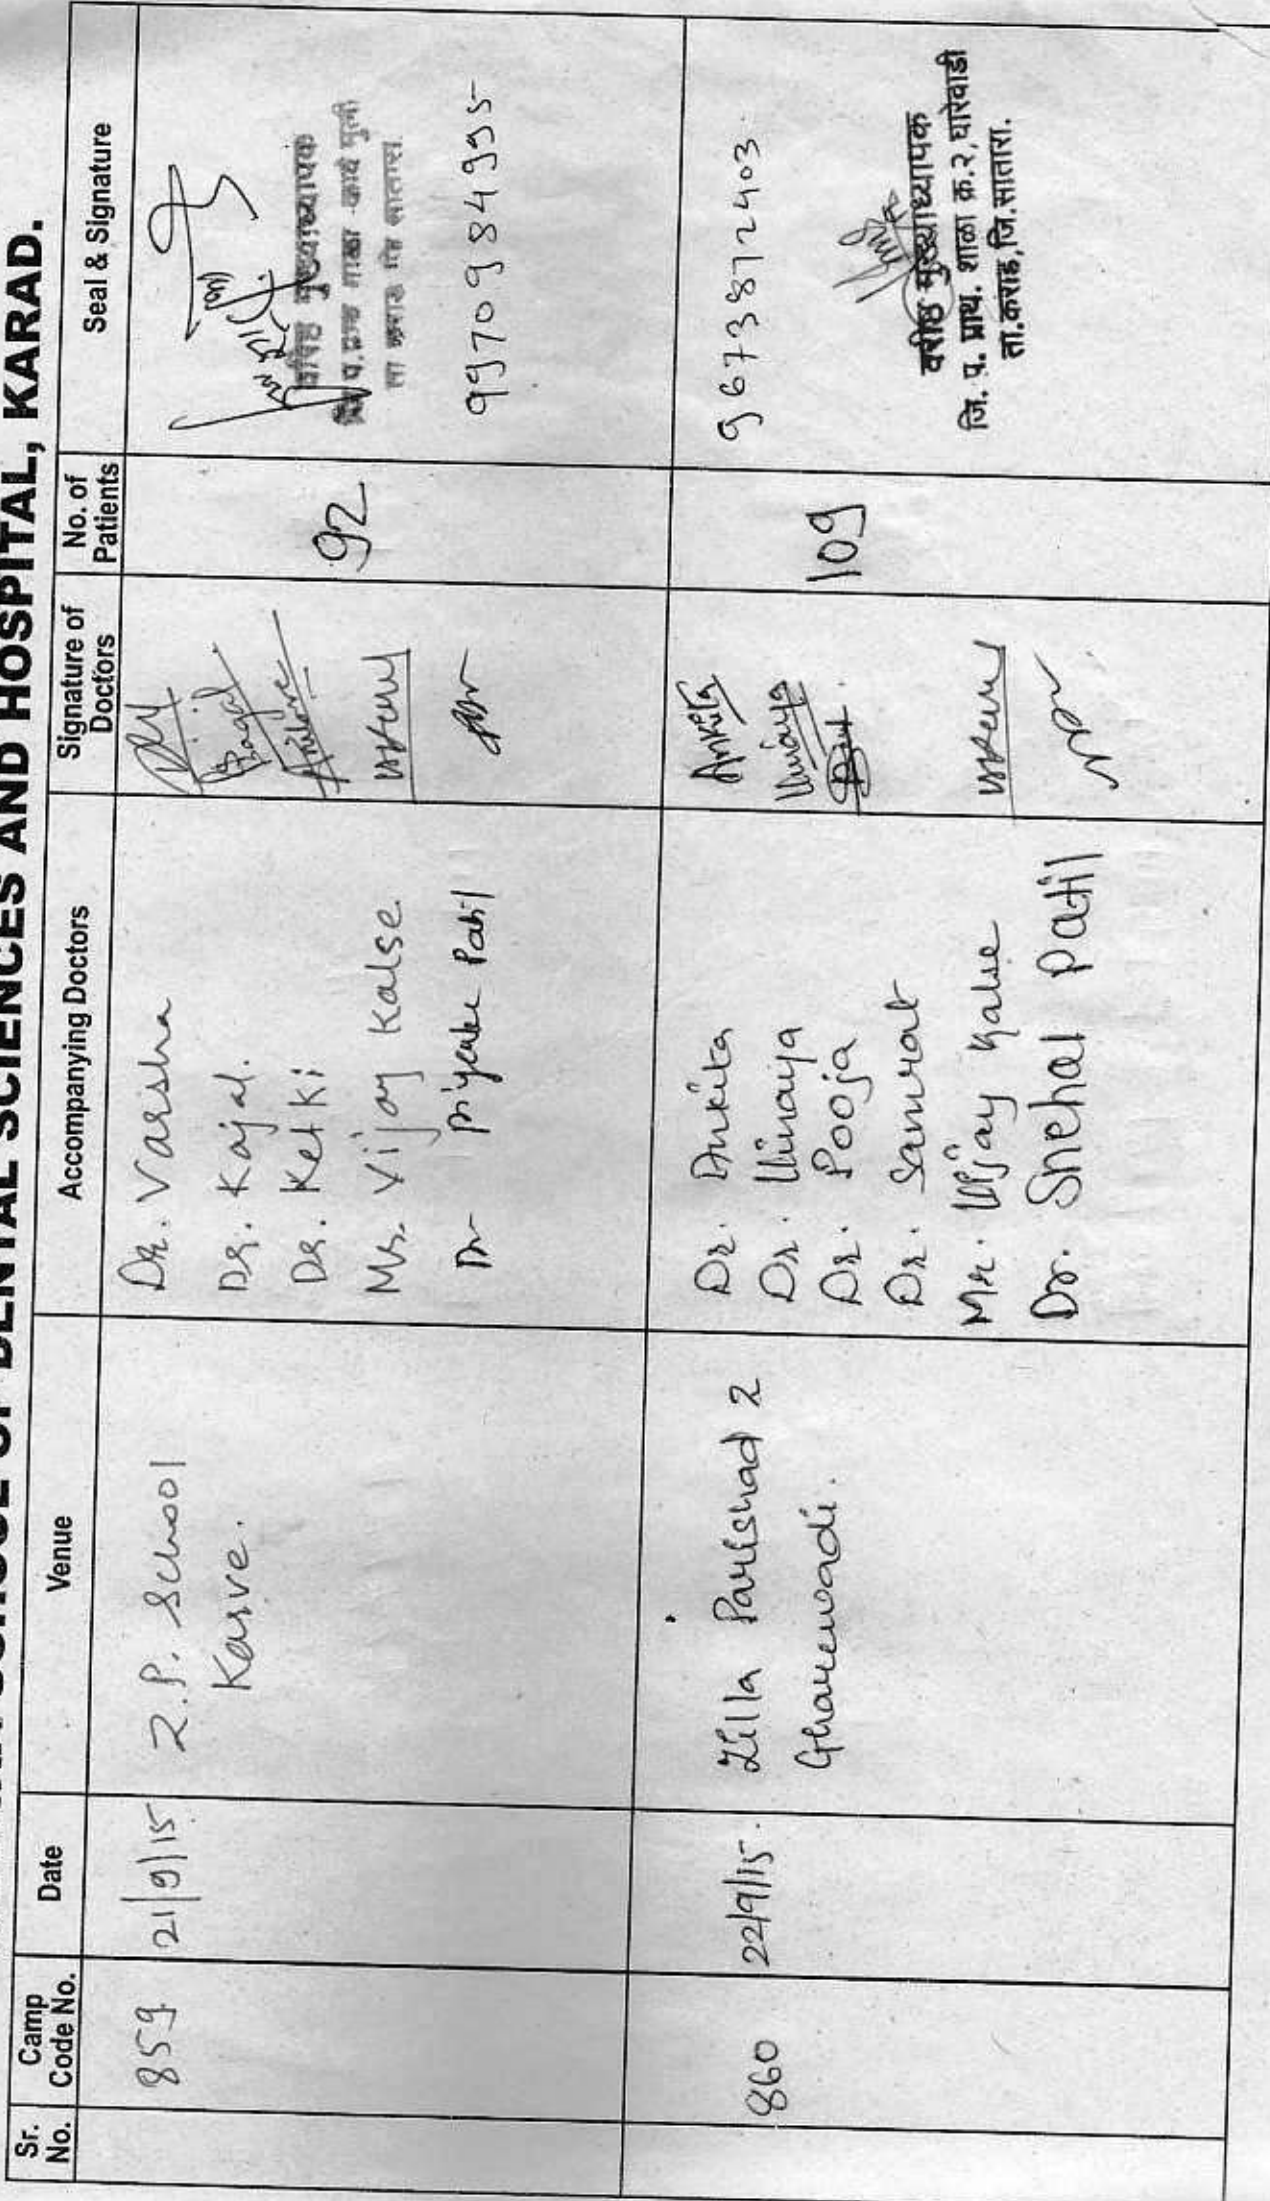 SCHOOL OF DENTAL SCIENCES AND HOSPITAL, KARAD.
Sr. No.
Camp Code No.
Date
Venue
Accompanying Doctors
Signature of Doctors
No. of Patients
Seal & Signature
859
21/9/15
Z.P. School
Karve.
Dr. Varsha
Dr. Kajal.
Dr. Ketki
Mr. Vijay Kalse
Dr Priyanka Patil
92
वरिष्ठ मुख्याध्यापक
9970984995
860
22/9/15.
Zilla Parishad 2
Gharewadi.
Dr. Ankita
Dr. Unnaiya
Dr. Pooja
Dr. Samrat
Mr. Vijay Kalse
Dr. Snehal Patil
Ankita
109
9673872403
वरीष्ठ मुख्याध्यापक
जि. प. प्राथ. शाळा क्र.२, घारेवाडी
ता.कराड,जि.सातारा.